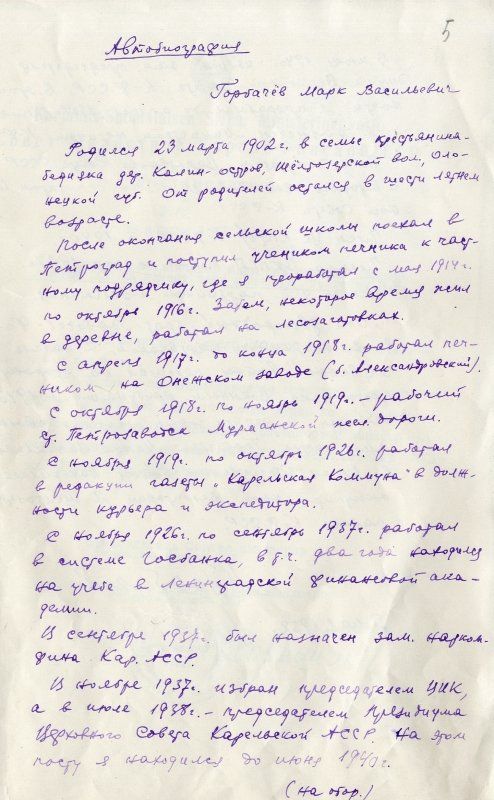 5
Автобиография
Горбачёв Марк Васильевич
Родился 23 марта 1902 г. в семье крестьянина-
бедняка дер. Калин-остров, Шёлтозерской вол, Оло-
нецкой губ. От родителей остался в шести летнем
возрасте.
После окончания сельской школы поехал в
Петроград и поступил учеником печника к част-
ному подрядчику, где я проработал с мая 1914 г.
по октябрь 1916 г. Затем, некоторое время жил
в деревне, работал на лесозаготовках.
С апреля 1917 г. до конца 1918 г. работал печ-
ником на Онежском заводе (б. Александровский).
С октября 1918 г. по ноябрь 1919 г. - рабочий
ст. Петрозаводск Мурманской жел. дороги.
С ноября 1919 г. по октябрь 1926 г. работал
в редакции газеты „Карельская Коммуна" в долж-
ности курьера и экспедитора.
С ноября 1926 г. по сентябрь 1937 г. работал
в системе Госбанка, в т.ч. два года находился
на учебе в Ленинградской финансовой ака-
демии.
В сентябре 1937 г. был назначен зам. нарком-
фина Кар. АССР.
В ноябре 1937 г. избран председателем ЦИК,
а в июле 1938 г. - председателем Президиума
Верховного Совета Карельской АССР. На этом
посту я находился до июня 1940 г.
(на обор.)